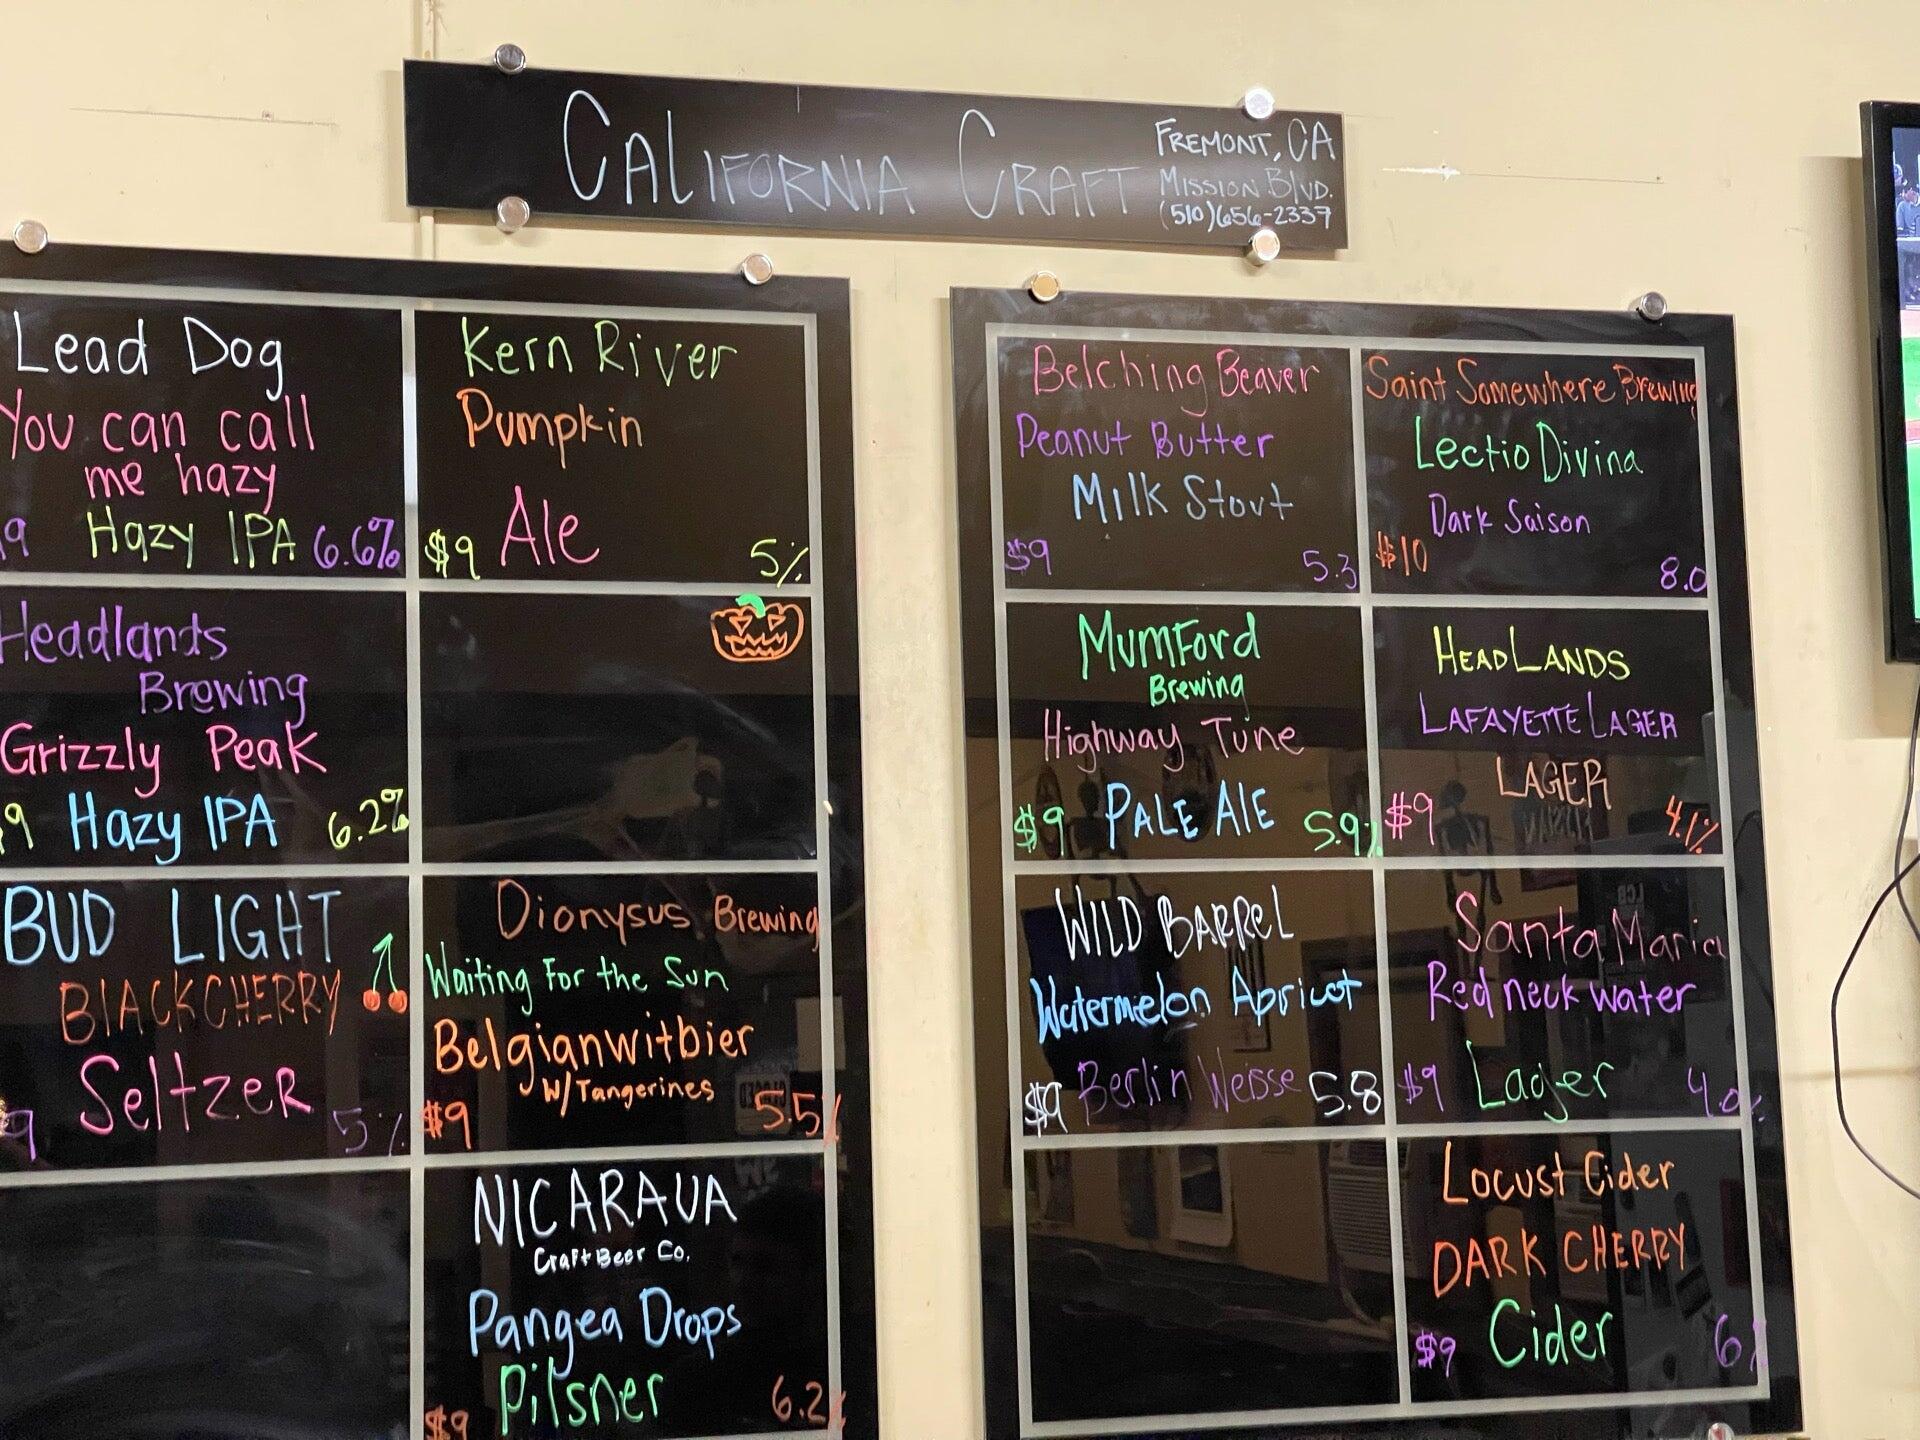 CALIFORNIA CRAFT
FREMONT, CA
MISSION BLVD.
(510)656-2337
Lead Dog
You can call
me hazy
9 Hazy IPA 6.6%
Kern River
Pumpkin
$9 Ale 5%
Headlands
Brewing
Grizzly Peak
9 Hazy IPA 6.2%
BUD LIGHT
BLACKCHERRY
9 SeltzeR 5%
Dionysus Brewing
Waiting For the Sun
Belgianwitbier
W/Tangerines
$9 5.5%
NICARAUA
Craft Beer Co.
Pangea Drops
$9 Pilsner 6.2%
Belching Beaver
Peanut Butter
Milk Stout
$9 5.3
Saint Somewhere Brewing
Lectio Divina
Dark Saison
$10 8.0
MumFord
Brewing
Highway Tune
$9 PALE ALE 5.9%
HEADLANDS
LAFAYETTE LAGER
LAGER
$9 4.1%
WILD BARREL
Watermelon Apricot
$9 Berlin Weisse 5.8
Santa Maria
Redneck water
$9 Lager 4.0%
Locust Cider
DARK CHERRY
$9 Cider 6%